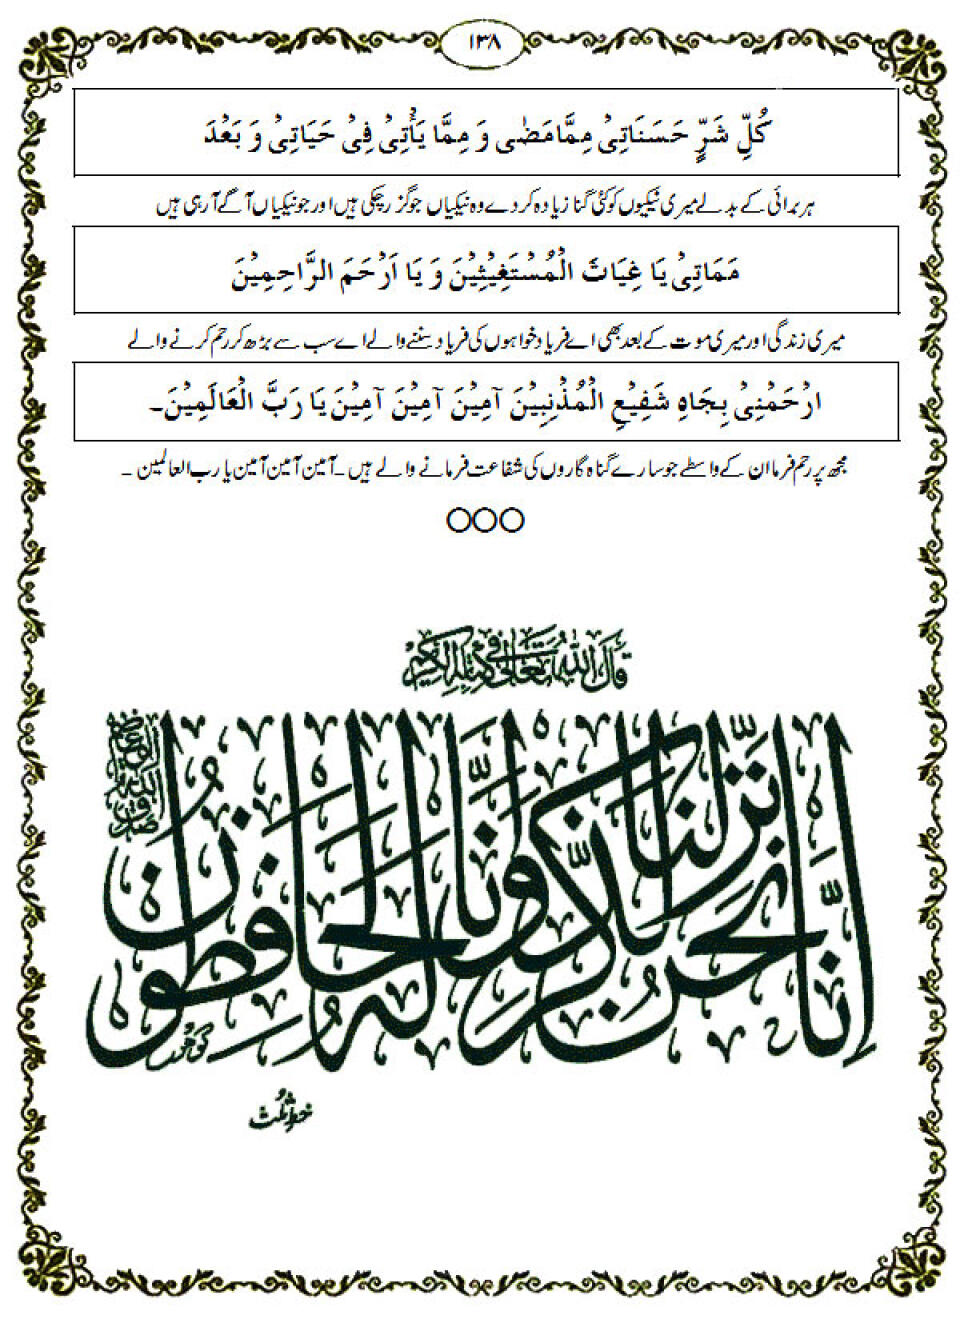 ۱۳۸
كُلِّ شَرٍّ حَسَنَاتِیْ مِمَّا مَضٰی وَ مِمَّا یَأْتِیْ فِیْ حَیَاتِیْ وَ بَعْدَ
ہر برائی کے بدلے میری نیکیوں کو کئی گنا زیادہ کر دے وہ نیکیاں جو گزر چکی ہیں اور جو نیکیاں آگے آ رہی ہیں
مَمَاتِیْ یَا غِیَاثَ الْمُسْتَغِیْثِیْنَ وَ یَا اَرْحَمَ الرَّاحِمِیْنَ
میری زندگی اور میری موت کے بعد بھی اے فریاد خواہوں کی فریاد سننے والے اے سب سے بڑھ کر رحم کرنے والے
ارْحَمْنِیْ بِجَاهِ شَفِیْعِ الْمُذْنِبِیْنَ آمِیْنَ آمِیْنَ آمِیْنَ یَا رَبَّ الْعَالَمِیْنَ۔
مجھ پر رحم فرما ان کے واسطے جو سارے گناہ گاروں کی شفاعت فرمانے والے ہیں۔ آمین آمین آمین یا رب العالمین۔
قال الله تعالى في كتابه الكريم
إِنَّا نَحْنُ نَزَّلْنَا الذِّكْرَ وَإِنَّا لَهُ لَحَافِظُونَ
صدق الله العظيم
گوهر
خط ثلث